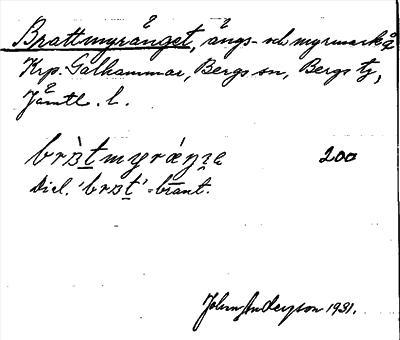 Brattmyrånget, ängs- och myrmark å
Krp. Galhammar, Bergs sn, Bergs tj,
Jämtl. l.
200
Dial. 'brat' = brant.
John Anderson 1931.